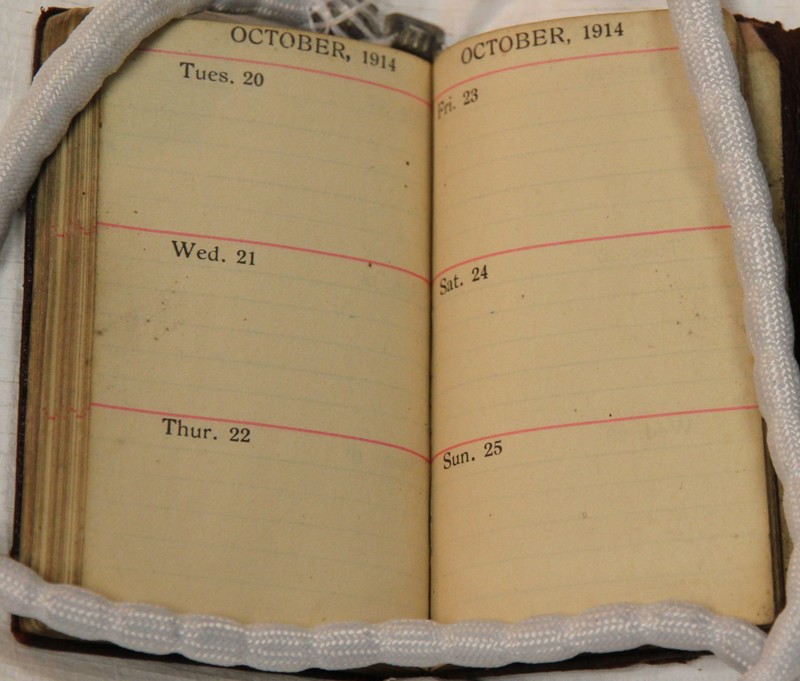 OCTOBER, 1914
Tues. 20
Wed. 21
Thur. 22
OCTOBER, 1914
Fri. 23
Sat. 24
Sun. 25